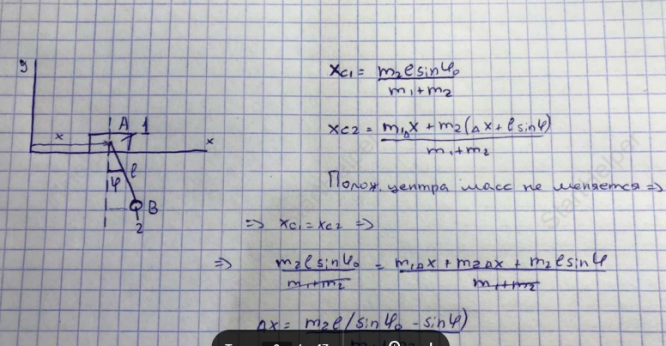 y
x
A 1
x
φ
l
B
2
xc1 = m2 l sinφ0 / m1+m2
xc2 = m1Δx + m2(Δx + l sinφ) / m1+m2
Полож. центра масс не меняется =>
=> xc1 = xc2 =>
=> m2 l sinφ0 / m1+m2 = m1Δx + m2Δx + m2 l sinφ / m1+m2
Δx = m2 l (sinφ0 - sinφ)